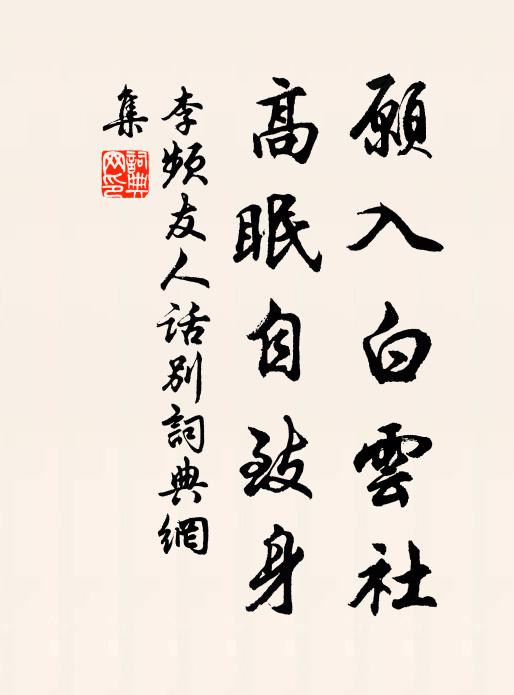 願入白雲社
高眠自致身
李頻友人话别詞典網
集
詞典
网印